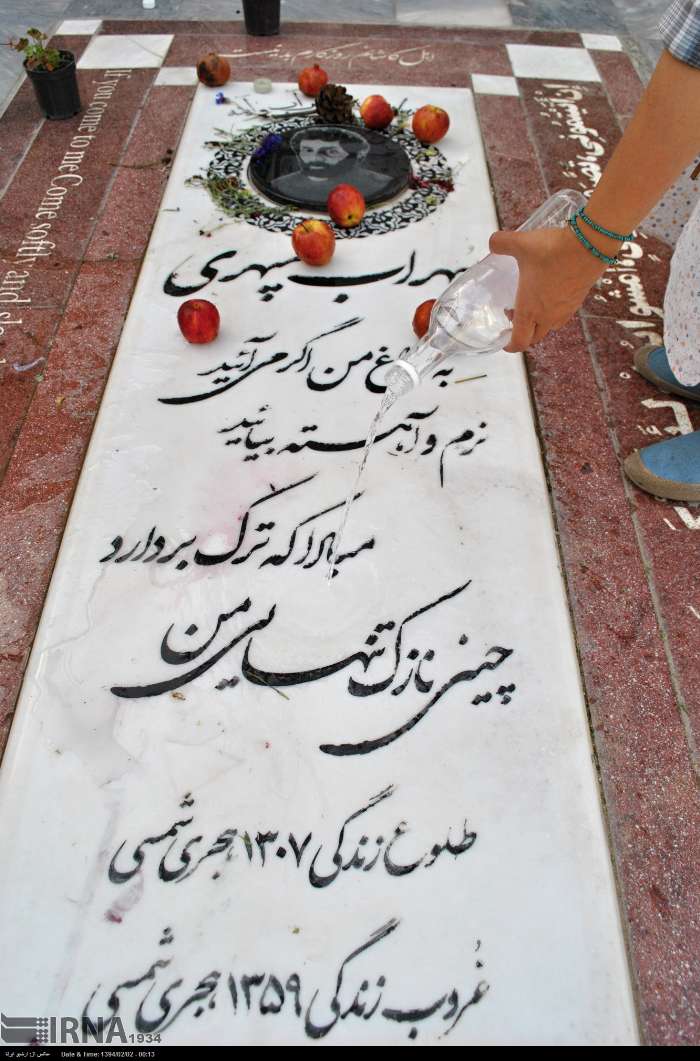 سهراب سپهری
به سراغ من اگر می آئید
نرم و آهسته بیائید
مبادا که ترک بردارد
چینی نازک تنهایی من
طلوع زندگی ۱۳۰۷ هجری شمسی
غروب زندگی ۱۳۵۹ هجری شمسی
If you come to me Come softly and slo
IRNA 1934
عکس از: آرشیو ایرنا
Date & Time: 1394/02/02 - 00:13